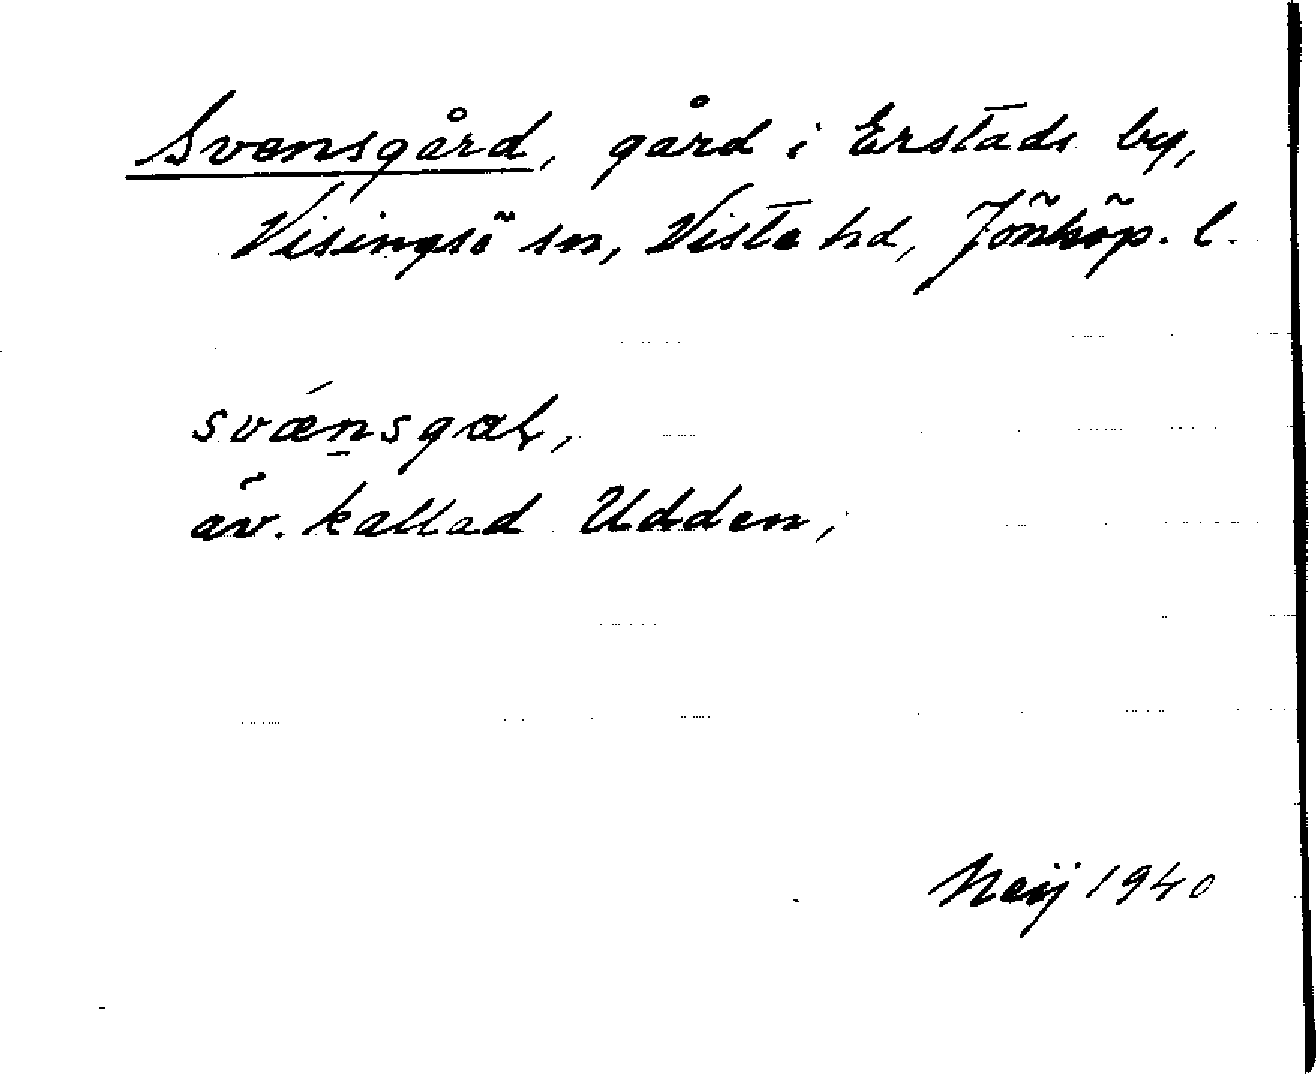 Svensgård, gård i Erstads by,
Visingsö sn, Vista hd, Jönköp. l.
svǽn̠sgaɽ,
äv. kallad Udden,
Neij 1940